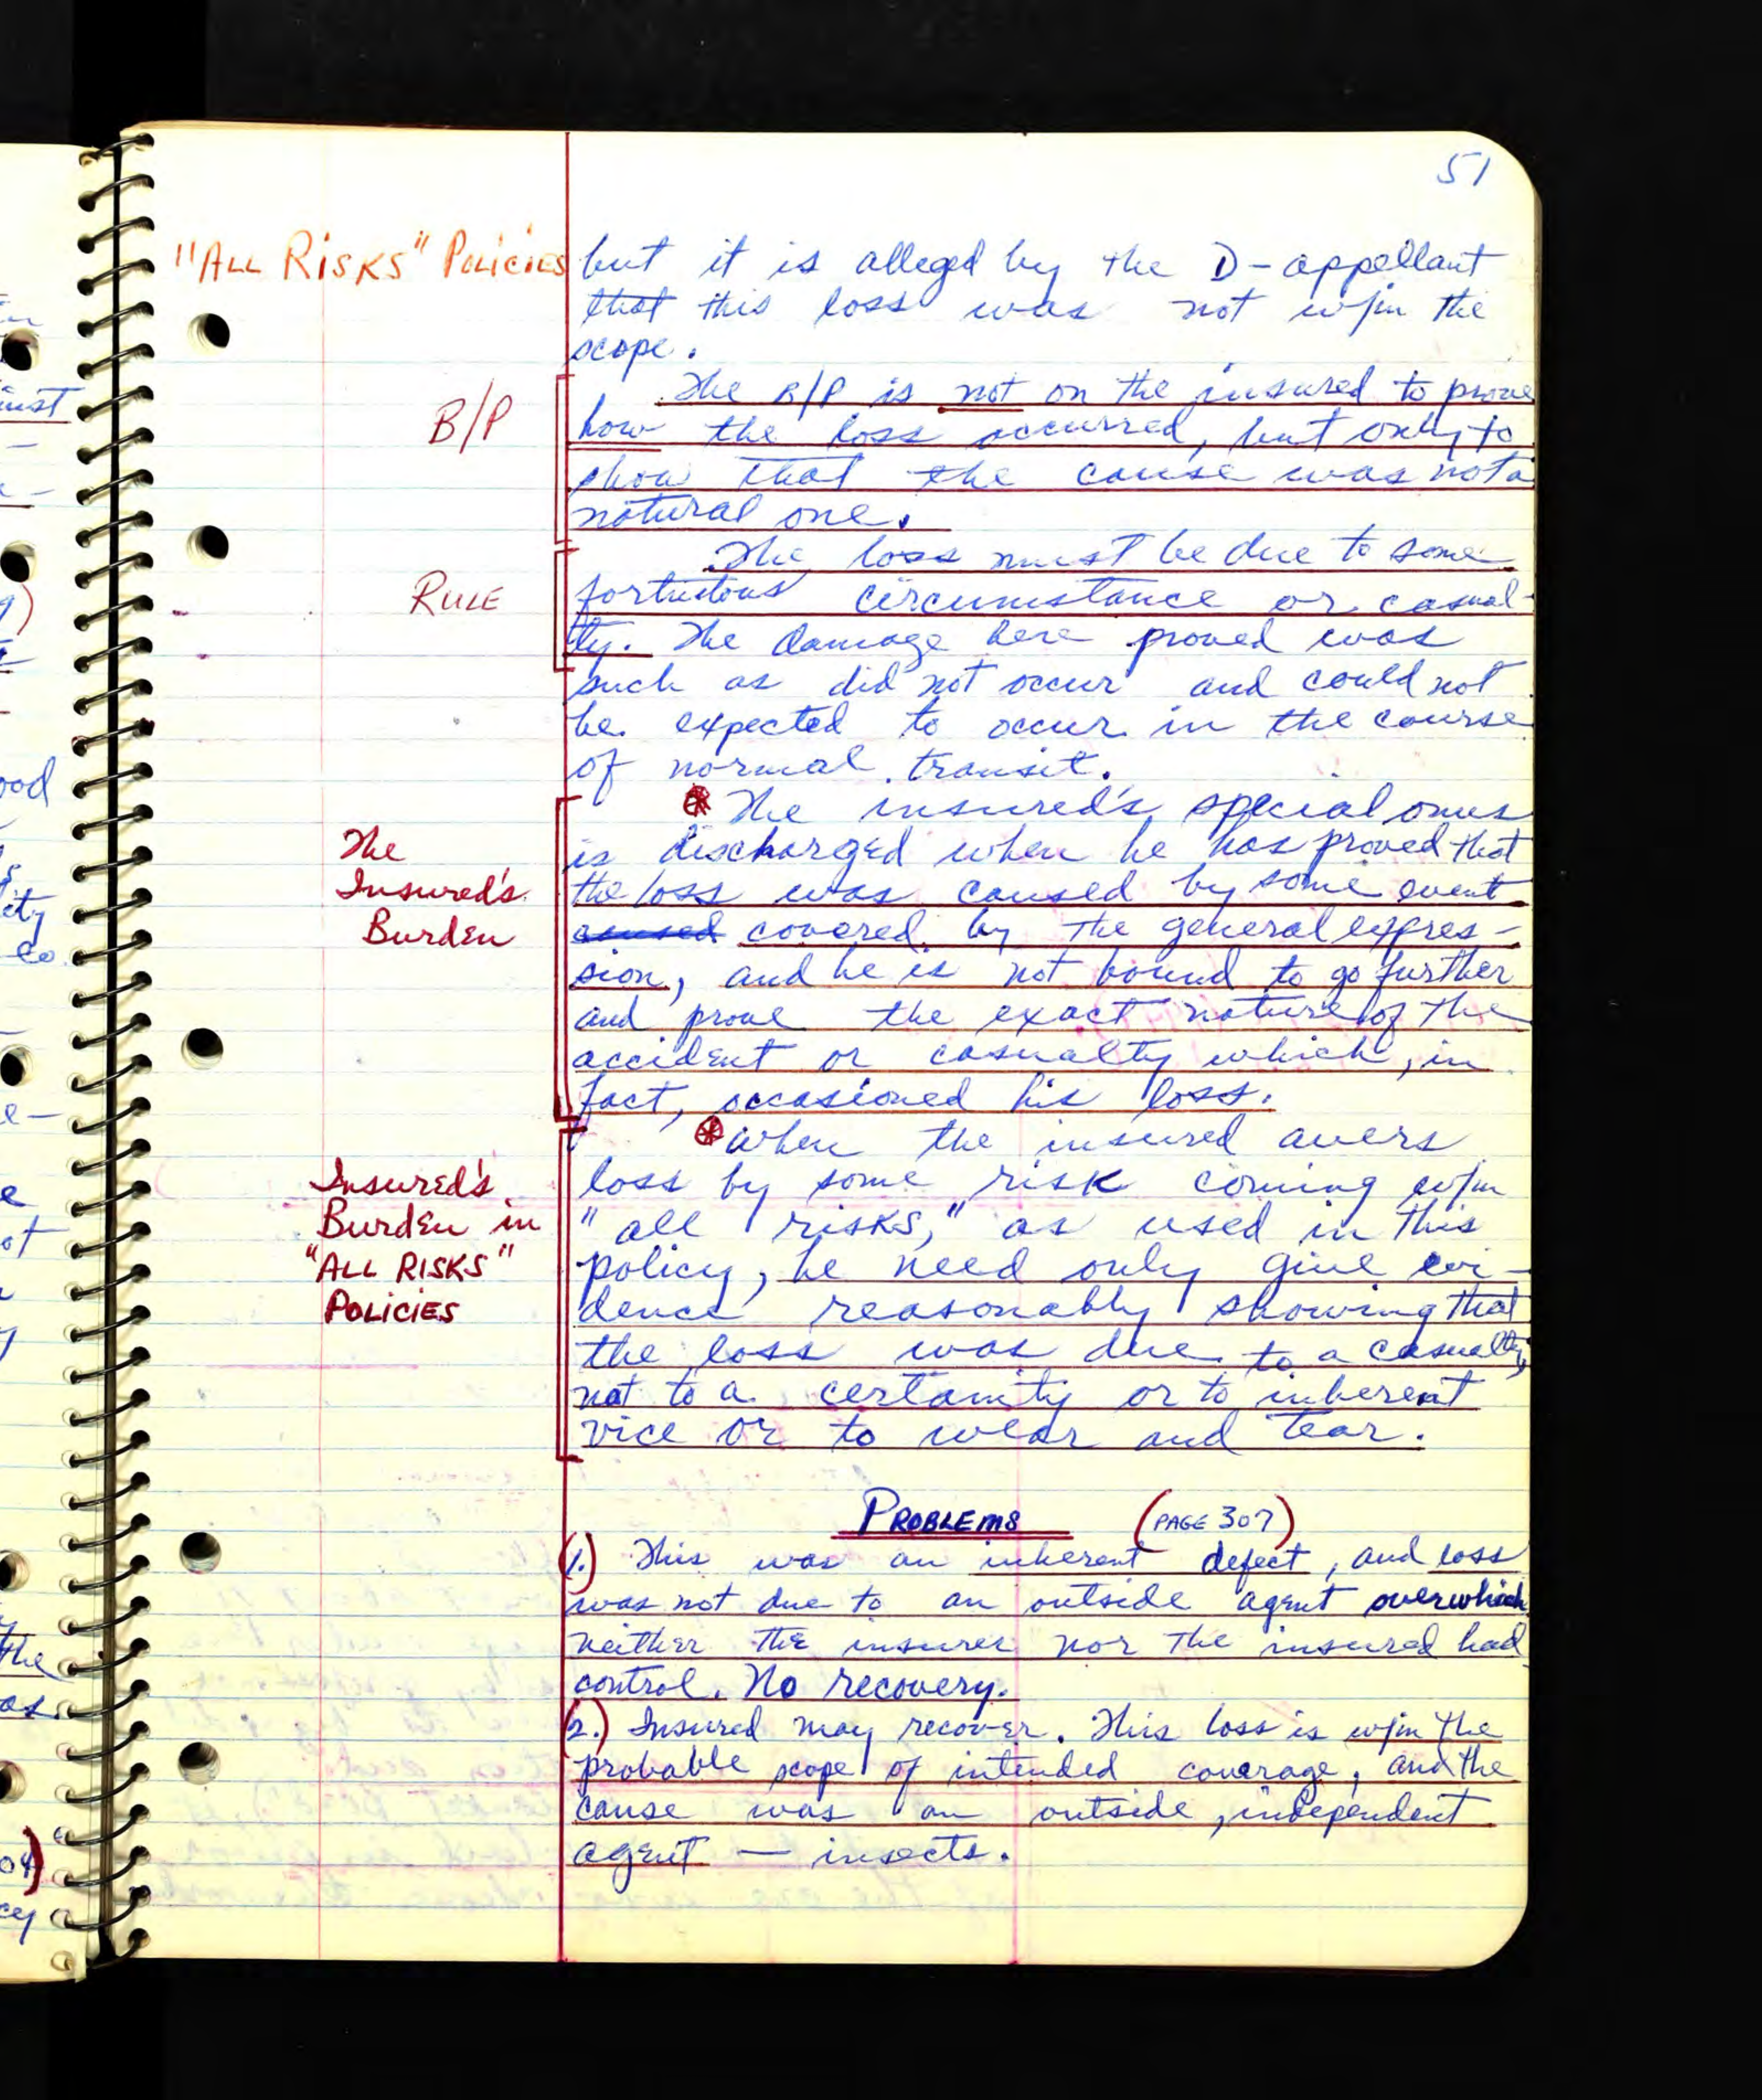 51
"ALL RISKS" POLICIES
but it is alleged by the D-appellant
that this loss was not w/in the
scope.
B/P
The B/P is not on the insured to prove
how the loss occurred, but only to
show that the cause was not a
natural one.
RULE
The loss must be due to some
fortuitous circumstance or casual-
ty. The damage here proved was
such as did not occur and could not
be expected to occur in the course
of normal transit.
The
Insured's
Burden
⊛ The insured's special onus
is discharged when he has proved that
the loss was caused by some event
caused covered by the general expres-
sion, and he is not bound to go further
and prove the exact nature of the
accident or casualty which, in
fact, occasioned his loss.
Insured's
Burden in
"ALL RISKS"
POLICIES
⊛ when the insured avers
loss by some risk coming w/in
"all risks," as used in this
policy, he need only give evi-
dence reasonably showing that
the loss was due to a casualty,
not to a certainity or to inherent
vice or to wear and tear.
PROBLEMS (PAGE 307)
(1.) This was an inherent defect, and loss
was not due to an outside agent over which
neither the insurer nor the insured had
control. No recovery.
(2.) Insured may recover. This loss is w/in the
probable scope of intended coverage, and the
cause was an outside, independent
agent — insects.